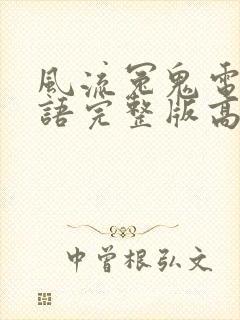 風流冤鬼電
語完整版高
中曾根弘文